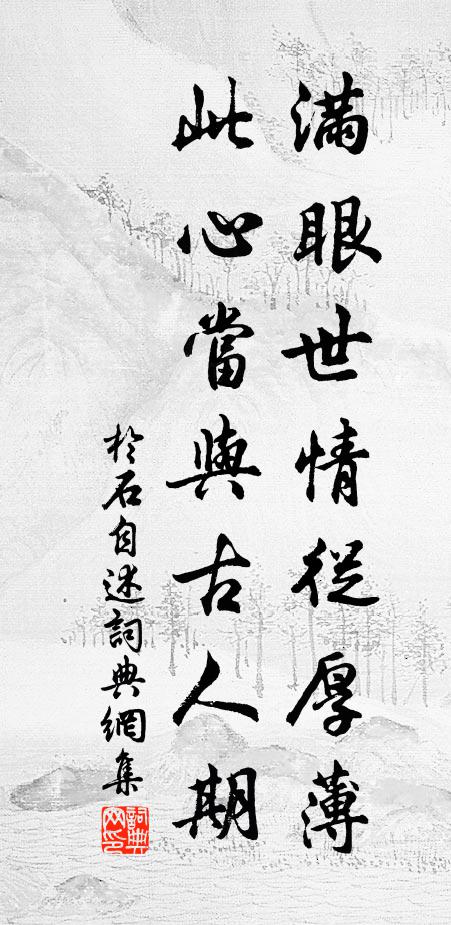 滿眼世情從厚薄
此心當與古人期
於石自述詞典網集
詞典網印